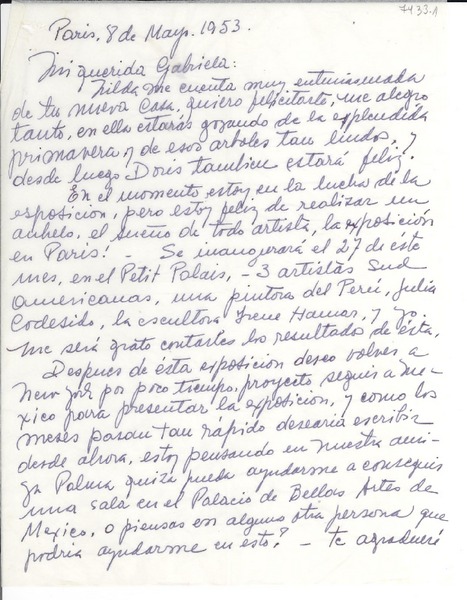 7433.A
Paris, 8 de Mayo. 1953.
Mi querida Gabriela:
Nilda me cuenta muy entusiasmada
de tu nueva Casa, quiero felicitarte, me alegro
tanto, en ella estarás gozando de la esplendida
primavera, y de esos arboles tan lindos. y
desde luego Doris tambien estará feliz.
En el momento estoy en la lucha de la
exposicion, pero estoy feliz de realizar un
anhelo, el sueño de todo artista, la exposición
en Paris! - Se inaugurará el 27 de éste
mes, en el Petit Palais, - 3 artistas Sud
americanas, una pintora del Perú, Julia
Codesido, la escultora Irene Hamar, y yo.
me será grato contarles los resultados de ésta.
Despues de ésta exposicion deseo volver a
New York por poco tiempo, proyecto seguir a Me-
xico para presentar la exposicion, y como los
meses pasan tan rápido desearia escribir
desde ahora, estoy pensando en nuestra ami-
ga Palma quizá pueda ayudarme a conseguir
una sala en el Palacio de Bellas Artes de
Mexico, o piensas en alguna otra persona que
podria ayudarme en esto? - te agradeceré